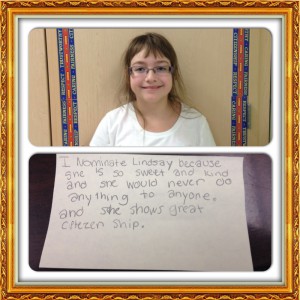 I Nominate Lindsay because
she is so sweet and kind
and she would never do
anything to anyone.
and she shows great
citezen ship.